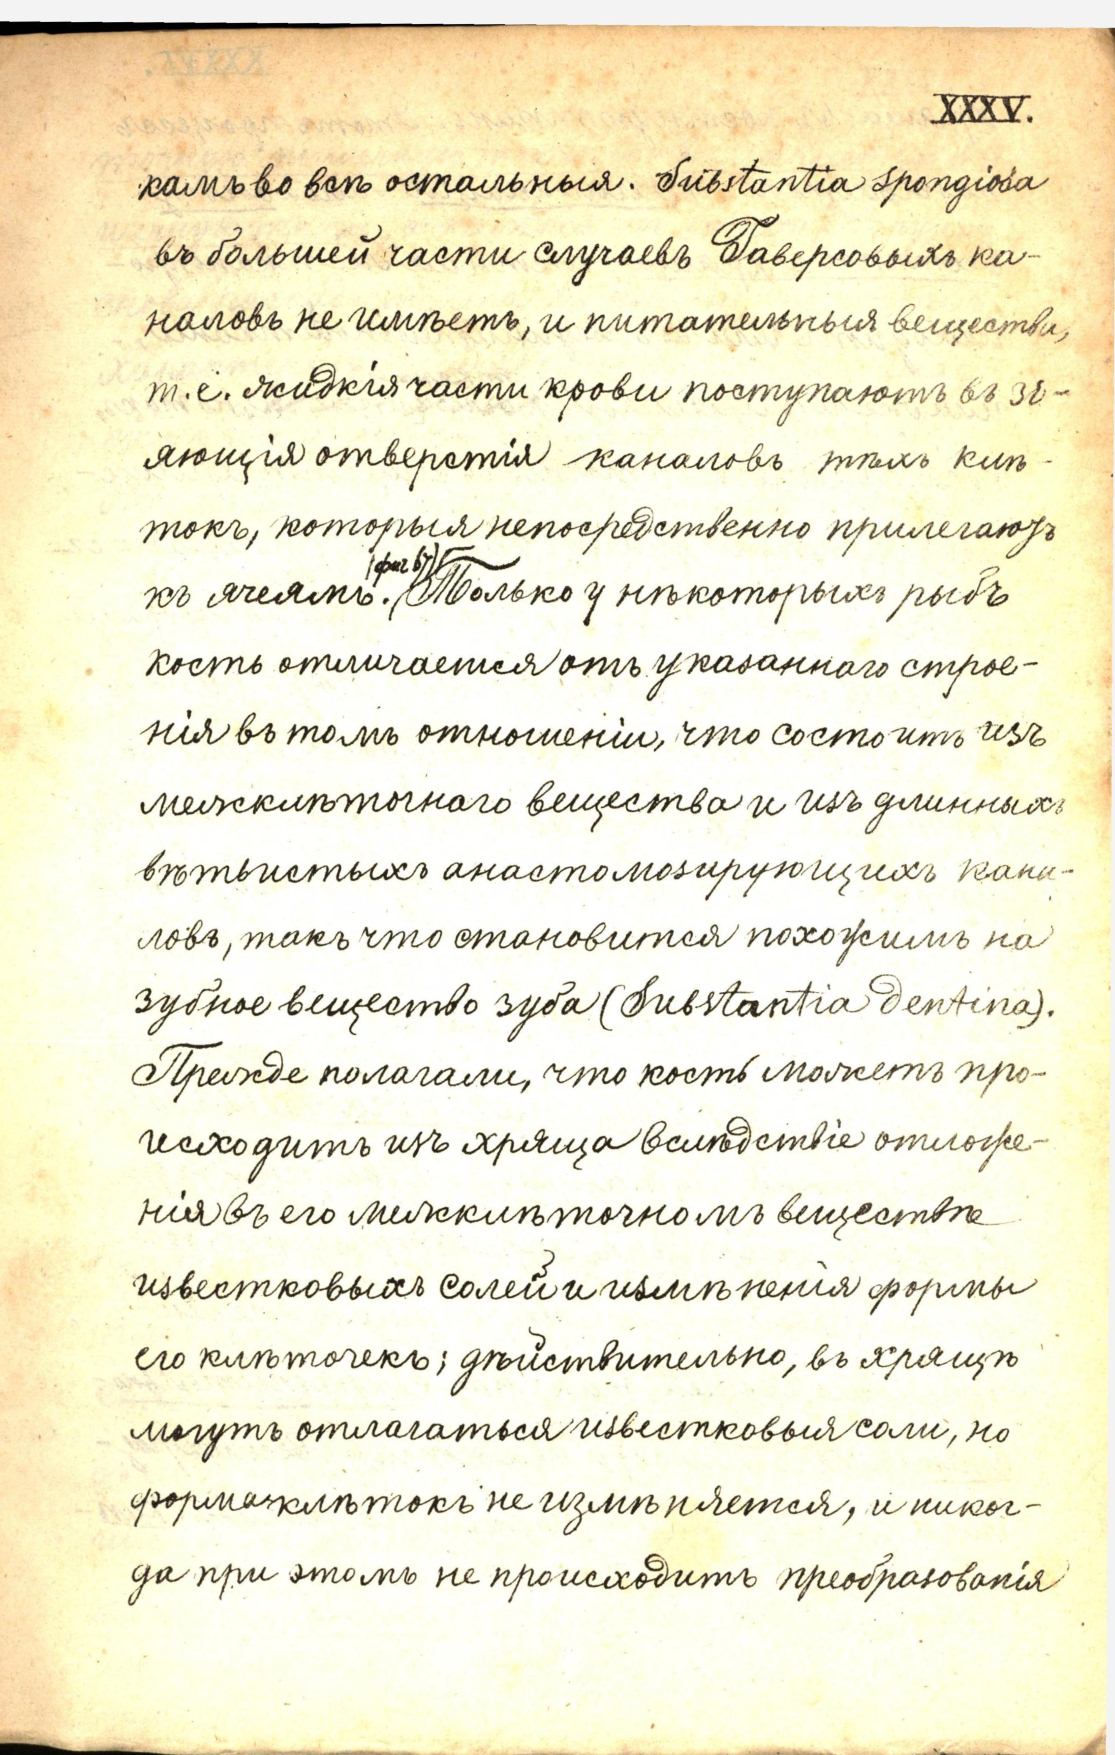 XXXV.
камъ во всѣ остальныя. Substantia spongiosa
въ большей части случаевъ Гаверсовыхъ ка-
наловъ не имѣетъ, и питательныя вещества,
т.е. жидкія части крови поступаютъ въ зі-
яющія отверстія каналовъ тѣхъ клѣ-
токъ, которыя непосредственно прилегаютъ
(фиг 67)
къ ячеямъ. Только у нѣкоторыхъ рыбъ
кость отличается отъ указаннаго строе-
нія въ томъ отношеніи, что состоитъ изъ
межклѣточнаго вещества и изъ длинныхъ
вѣтвистыхъ анастомозирующихъ кана-
ловъ, такъ что становится похожимъ на
зубное вещество зуба (Substantia dentina).
Прежде полагали, что кость можетъ про-
исходить изъ хряща вслѣдствіе отложе-
нія въ его межклѣточномъ веществѣ
известковыхъ солей и измѣненія формы
его клѣточекъ; дѣйствительно, въ хрящѣ
могутъ отлагаться известковыя соли, но
форма клѣтокъ не измѣняется, и никог-
да при этомъ не происходитъ преобразованія